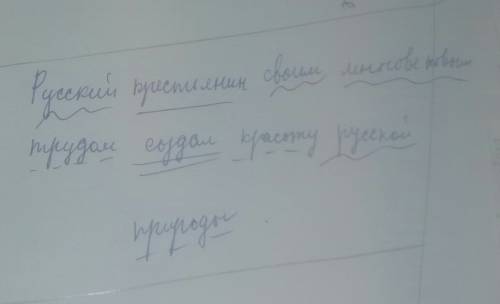 Русский крестьянин своим многовековым
трудом создал красоту русской
природы.